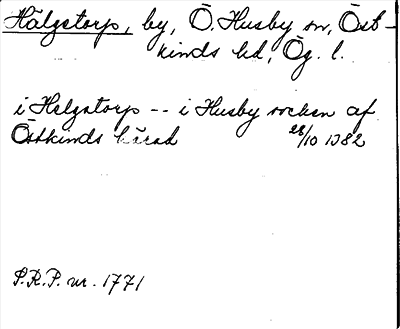 Hälgstorp, by, Ö. Husby sn, Öst-
kinds hd, Ög. l.
i Helgstorp -- i Husby socken af
Östkinds härad 28/10 1382
S.R.P. nr. 1771